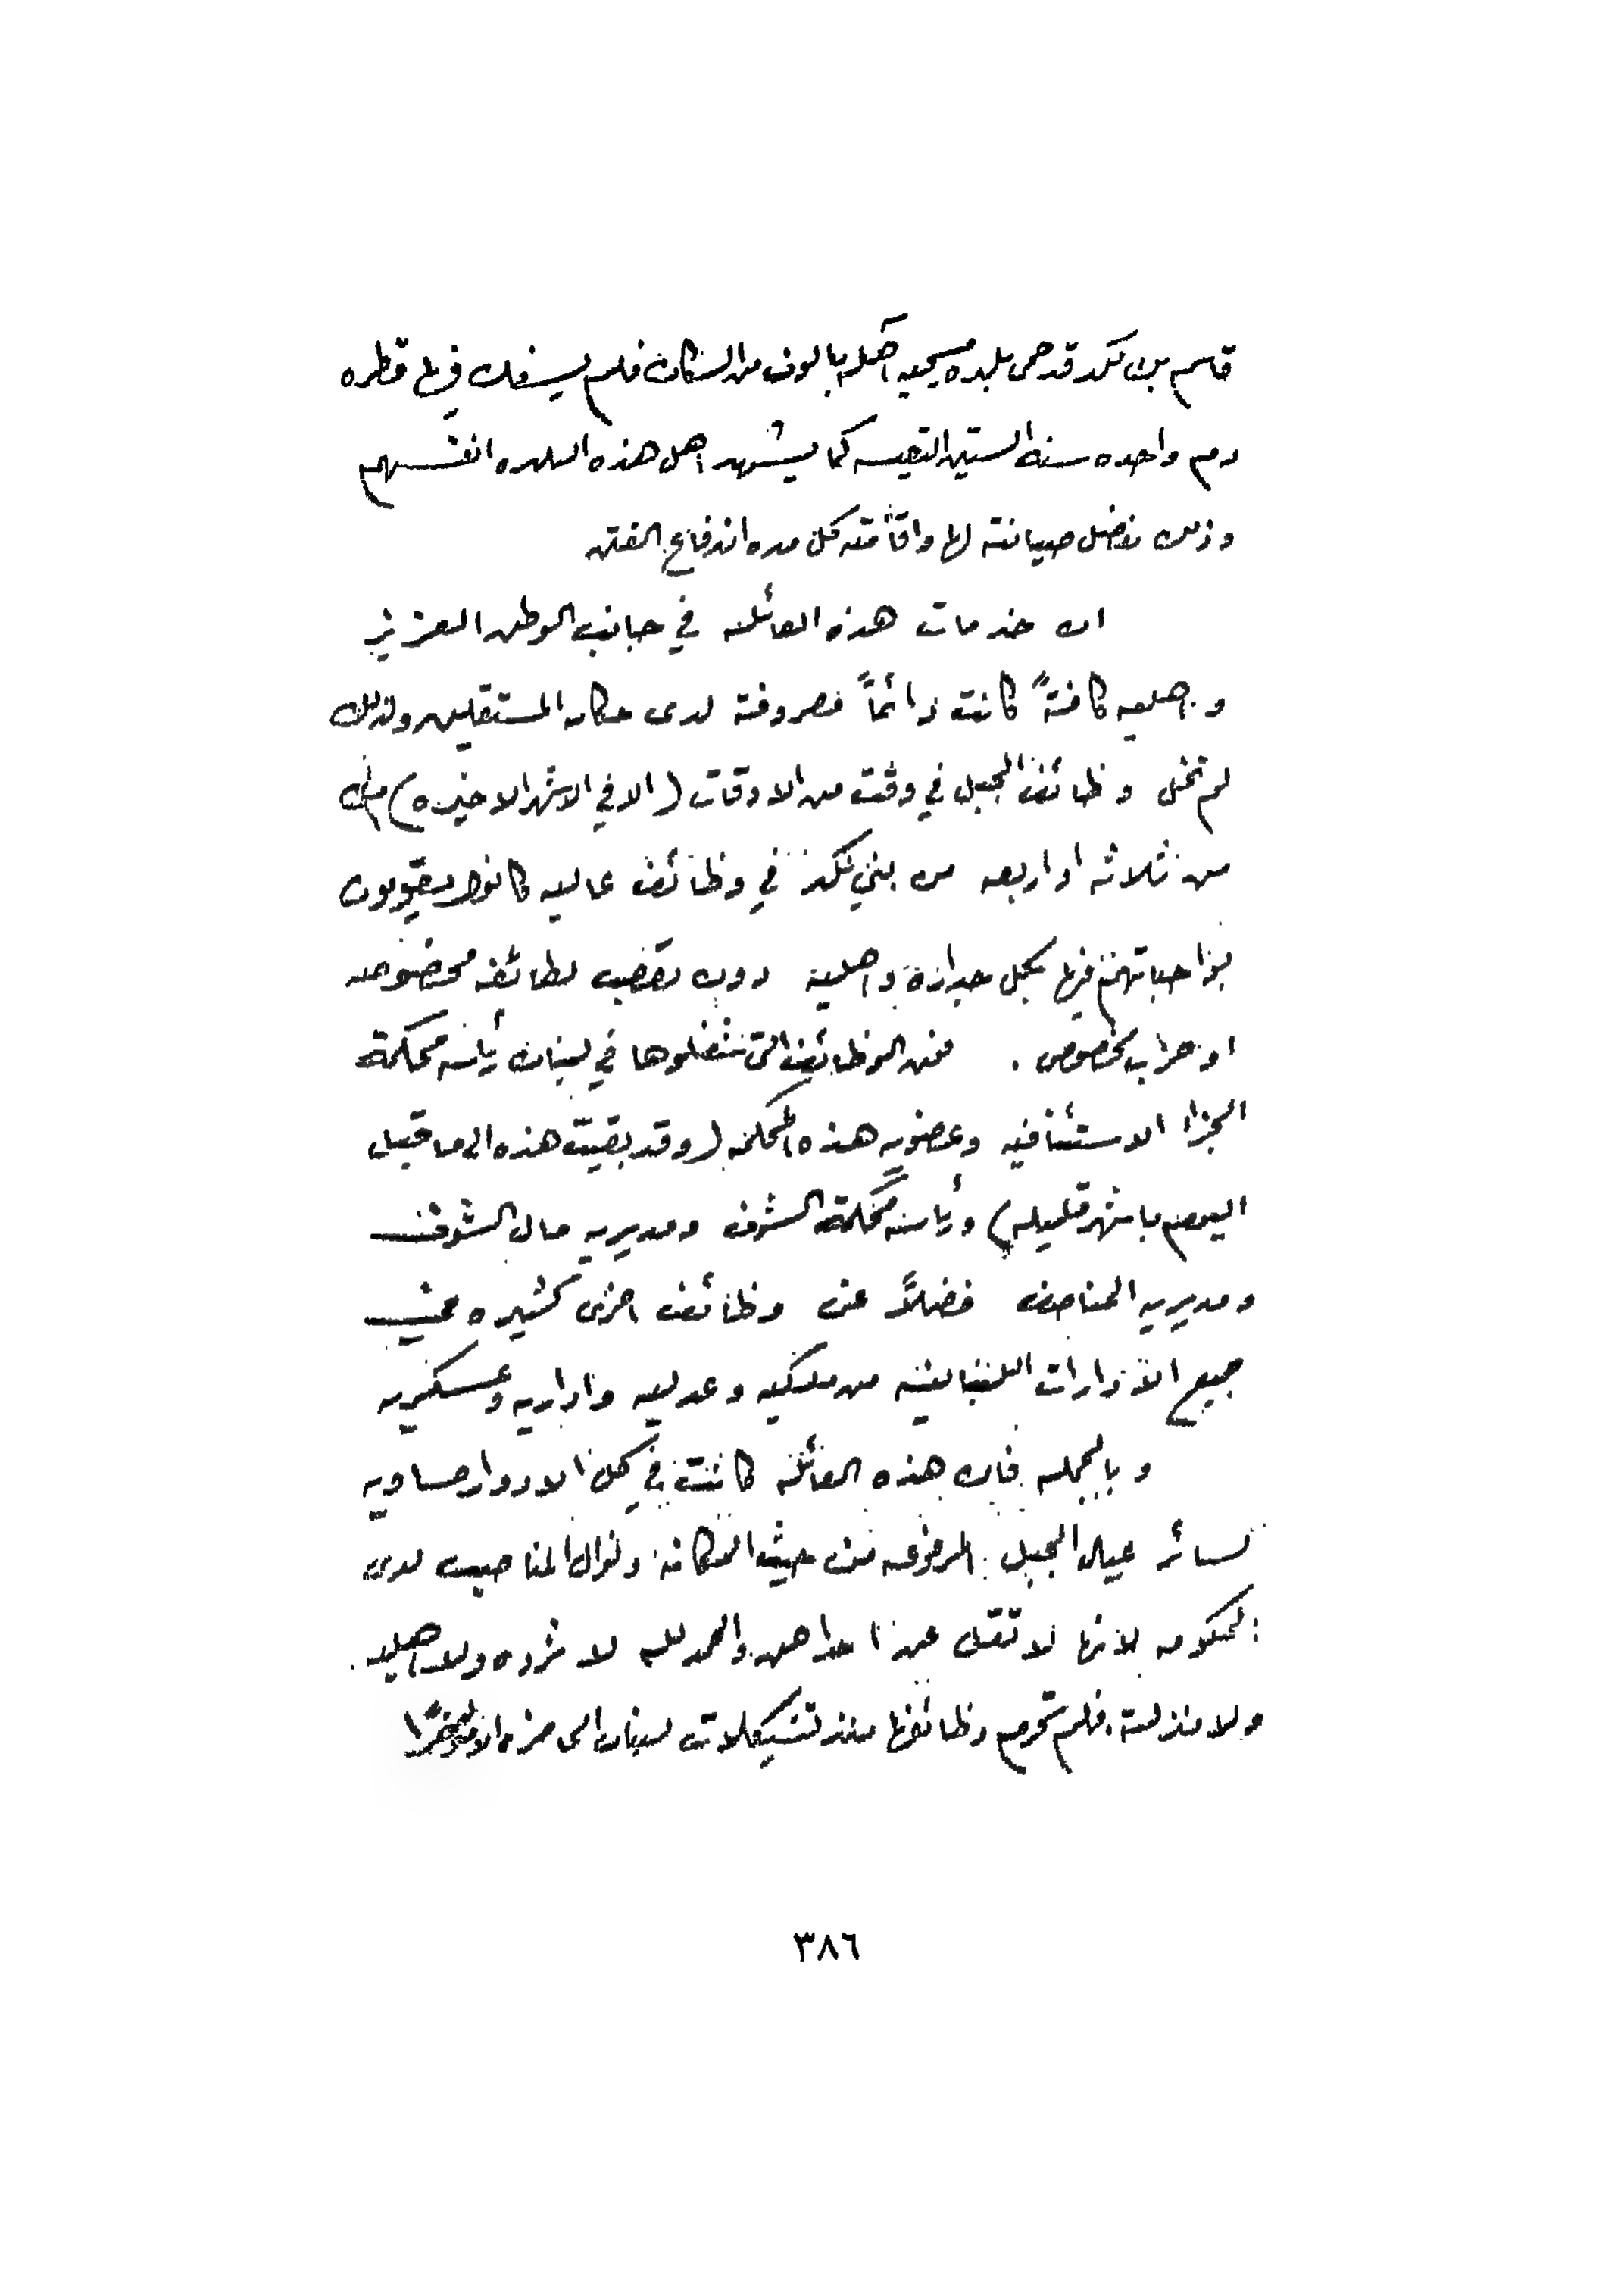 قاسم بك نكد قد حمى بلده مسيحيه آهله بالوف من السكان فلم يسفك فيها قطره
دم واحده سنة الستين التعيسه كما يشهد اهل هذه البلده انفسهم
وذلك بفضل صيانته لها واقامته كل مده اندفاع الفتن
ان خدمات هذه العائله في جانب الوطن العزيز
واهليه كافةً كانت دائماً معروفة لدى حكامه المستقلين ولذلك
لم تخل وظائف الجبل في وقت من الاوقات (الا في الاشهر الاخيره)
من ثلاثه او اربعه من بني نكد في وظائف عاليه كانوا يقومون
بواجباتهم فيها بكل جداره واهليه دون تعصب لطائفه مخصوصه
او حزب مخصوص . فمن الوظائف التي شغلوها في لبنان رئاسه محكمة
الجزا الاستئنافيه وعضويه هذه المحكمه (وقد بقيت هذه الى ما قبل
اليوم باشهر قليله) ورئاسه محكمة الشوف ومديريه مال الشوف
ومديريه المناصف فضلاً عن وظائف اخرى كثيره في
جميع الادارات اللبنانيه من ملكيه وعدليه واداريه وعسكريه
وبالجمله فان هذه العائله كانت في كل الادوار مساويه
لسائر عيال الجبل المرموقه من حيث المكانه ونوال المناصب لدى
الحكومه لانها لا تقل عن احداهن والحمد لله لا ثروه ولا اهليه
ولا منزلة . فلم تحرم وظائفها منذ تشكيلات لبنان الى
٣٨٦